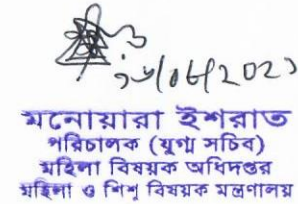 মনোয়ারা ইশরাত
পরিচালক (যুগ্ম সচিব)
মহিলা বিষয়ক অধিদপ্তর
মহিলা ও শিশু বিষয়ক মন্ত্রণালয়